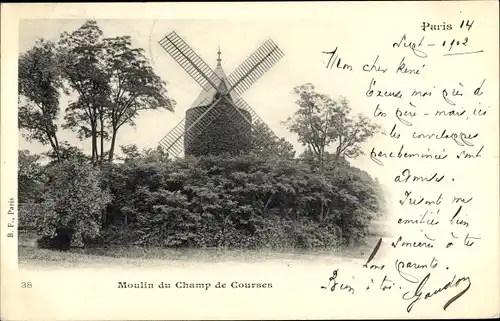 Paris 14
Sept - 1902
Mon cher René
Excuse moi près de
prie - mais ici
les enveloppes
parcheminées sont
admises.
Présente mes
amitiés bien
sincères à tes
bons parents.
Bien à toi.
Gaudon
B. F., Paris
38 Moulin du Champ de Courses